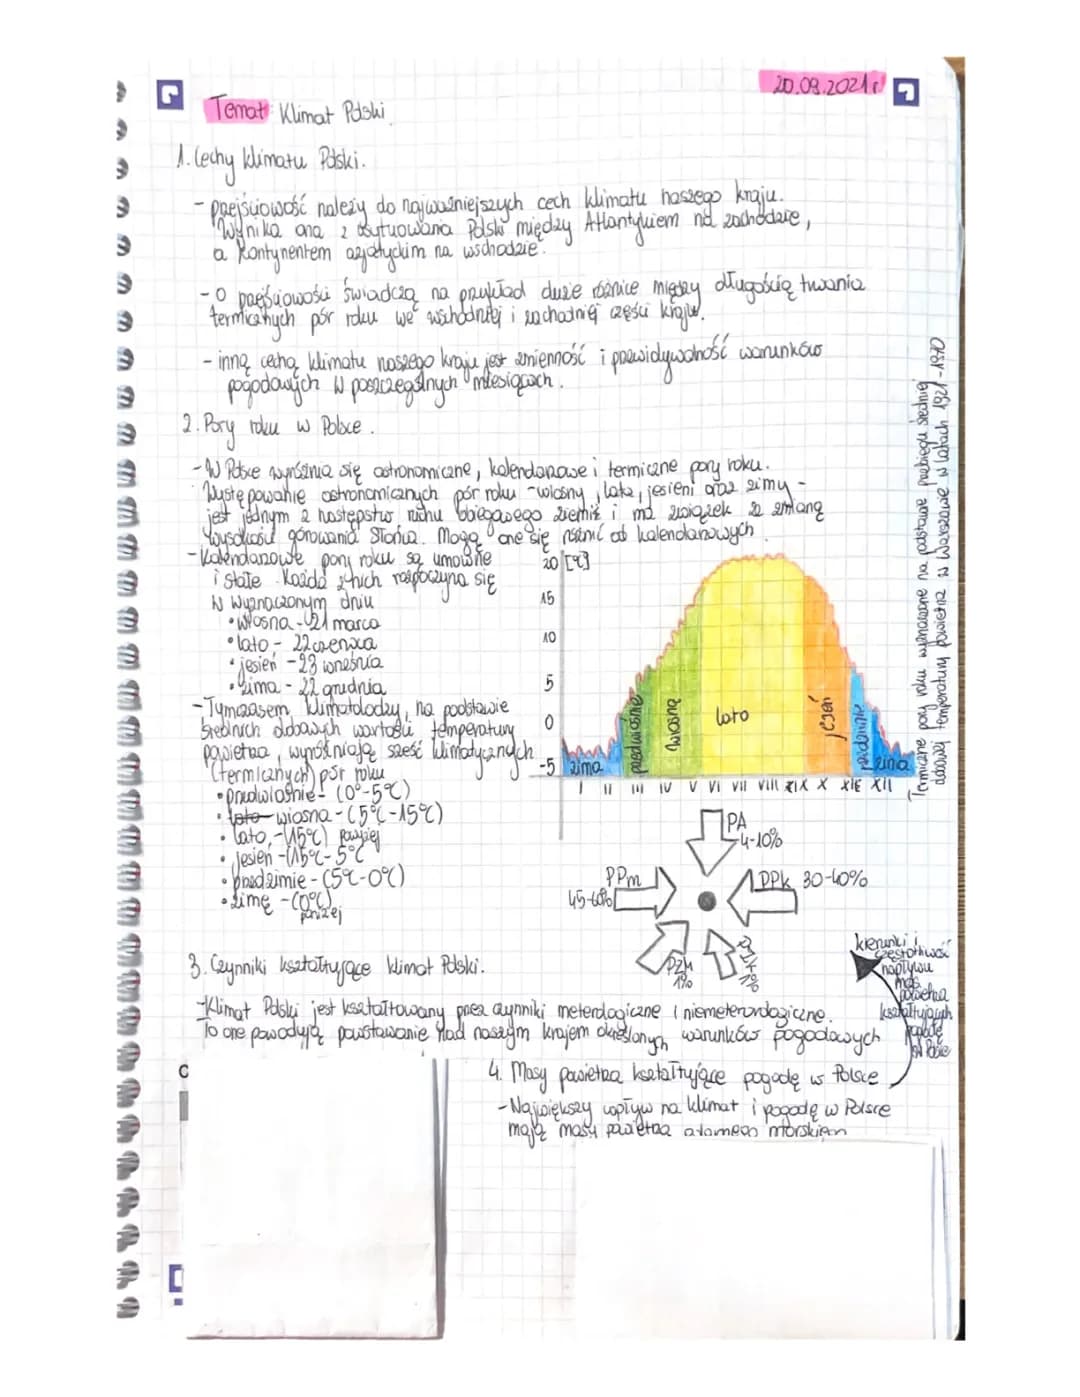 20.09.2021r
Temat: Klimat Polski
1. Cechy klimatu Polski.
- przejściowość należy do najważniejszych cech klimatu naszego kraju.
Wynika ona z usytuowania Polski między Atlantykiem na zachodzie,
a kontynentem azjatyckim na wschodzie.
- O przejściowości świadczą na przykład duże różnice między długością trwania
termicznych pór roku we wschodniej i zachodniej części kraju.
- inną cechą klimatu naszego kraju jest zmienność i przewidywalność warunków
pogodowych w poszczególnych miesiącach.
2. Pory roku w Polsce.
- W Polsce wyróżnia się astronomiczne, kalendarzowe i termiczne pory roku.
Występowanie astronomicznych pór roku - wiosny, lata, jesieni oraz zimy -
jest jednym z następstw ruchu obiegowego ziemi i ma związek ze zmianą
wysokości górowania Słońca. Mogą one się różnić od kalendarzowych.
- Kalendarzowe pory roku są umowne
i stałe. Każda z nich rozpoczyna się
w wyznaczonym dniu
• wiosna - 21 marca
• lato - 22 czerwca
• jesień - 23 września
• zima - 22 grudnia
- Tymczasem klimatolodzy, na podstawie
średnich dobowych wartości temperatury
powietrza, wyróżniają sześć klimatycznych
(termicznych) pór roku
• przedwiośnie - (0°-5°C)
• lato wiosna - (5°C-15°C)
• lato, - (15°C) powyżej
• jesień - (15°C - 5°C
• przedzimie - (5°C-0°C)
• zimę - (0°C)
poniżej
20 [°C]
15
10
5
0
-5
zima
przedwiośnie
wiosna
lato
jesień
przedzimie
zima
I II III IV V VI VII VIII IX X XI XII
Termiczne pory roku wyznaczone na podstawie przebiegu średniej
dobowej temperatury powietrza w Warszawie w latach 1921-1970
PA
4-10%
PPm
45-60%
PPk 30-40%
PZk
1%
kierunki i
częstotliwość
napływu
mas
powietrza
kształtujących
pogodę
w Polsce
3. Czynniki kształtujące klimat Polski.
- Klimat Polski jest kształtowany przez czynniki meteorologiczne i niemeteorologiczne.
To one powodują powstawanie nad naszym krajem określonych warunków pogodowych
4. Masy powietrza kształtujące pogodę w Polsce
- Największy wpływ na klimat i pogodę w Polsce
mają masy powietrza